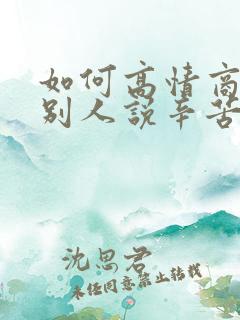 如何高情商
别人说辛苦
沈思君
未经同意禁止转载